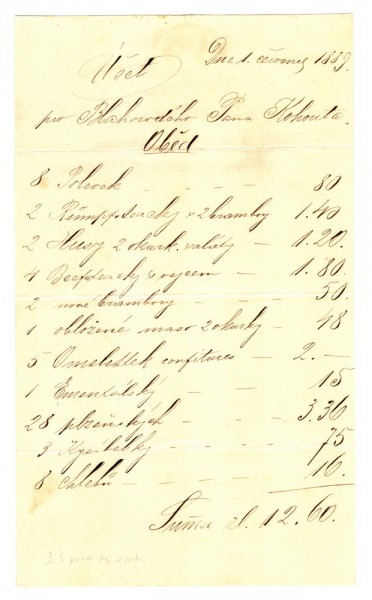 Účet Dne 1. června 1889.
pro Blahorodého Pana Kohouta.
Oběd
8 Polevek - - - - 80
2 Rumppstecky s 2 brambory 1.40
2 Husy 2 okurk. saláty - 1.20.
4 Beefstecky s vejcem - 1.80.
2 nové brambory - - - 50.
1 obložené maso 2 okurky - 48
5 Omelettek confitures - 2.-
1 Ementálský - - - 15
28 plzeňských - - - 3.36
3 Kyselky - - - 75
8 Chlebů - - - - 16.
Suma zl. 12.60.